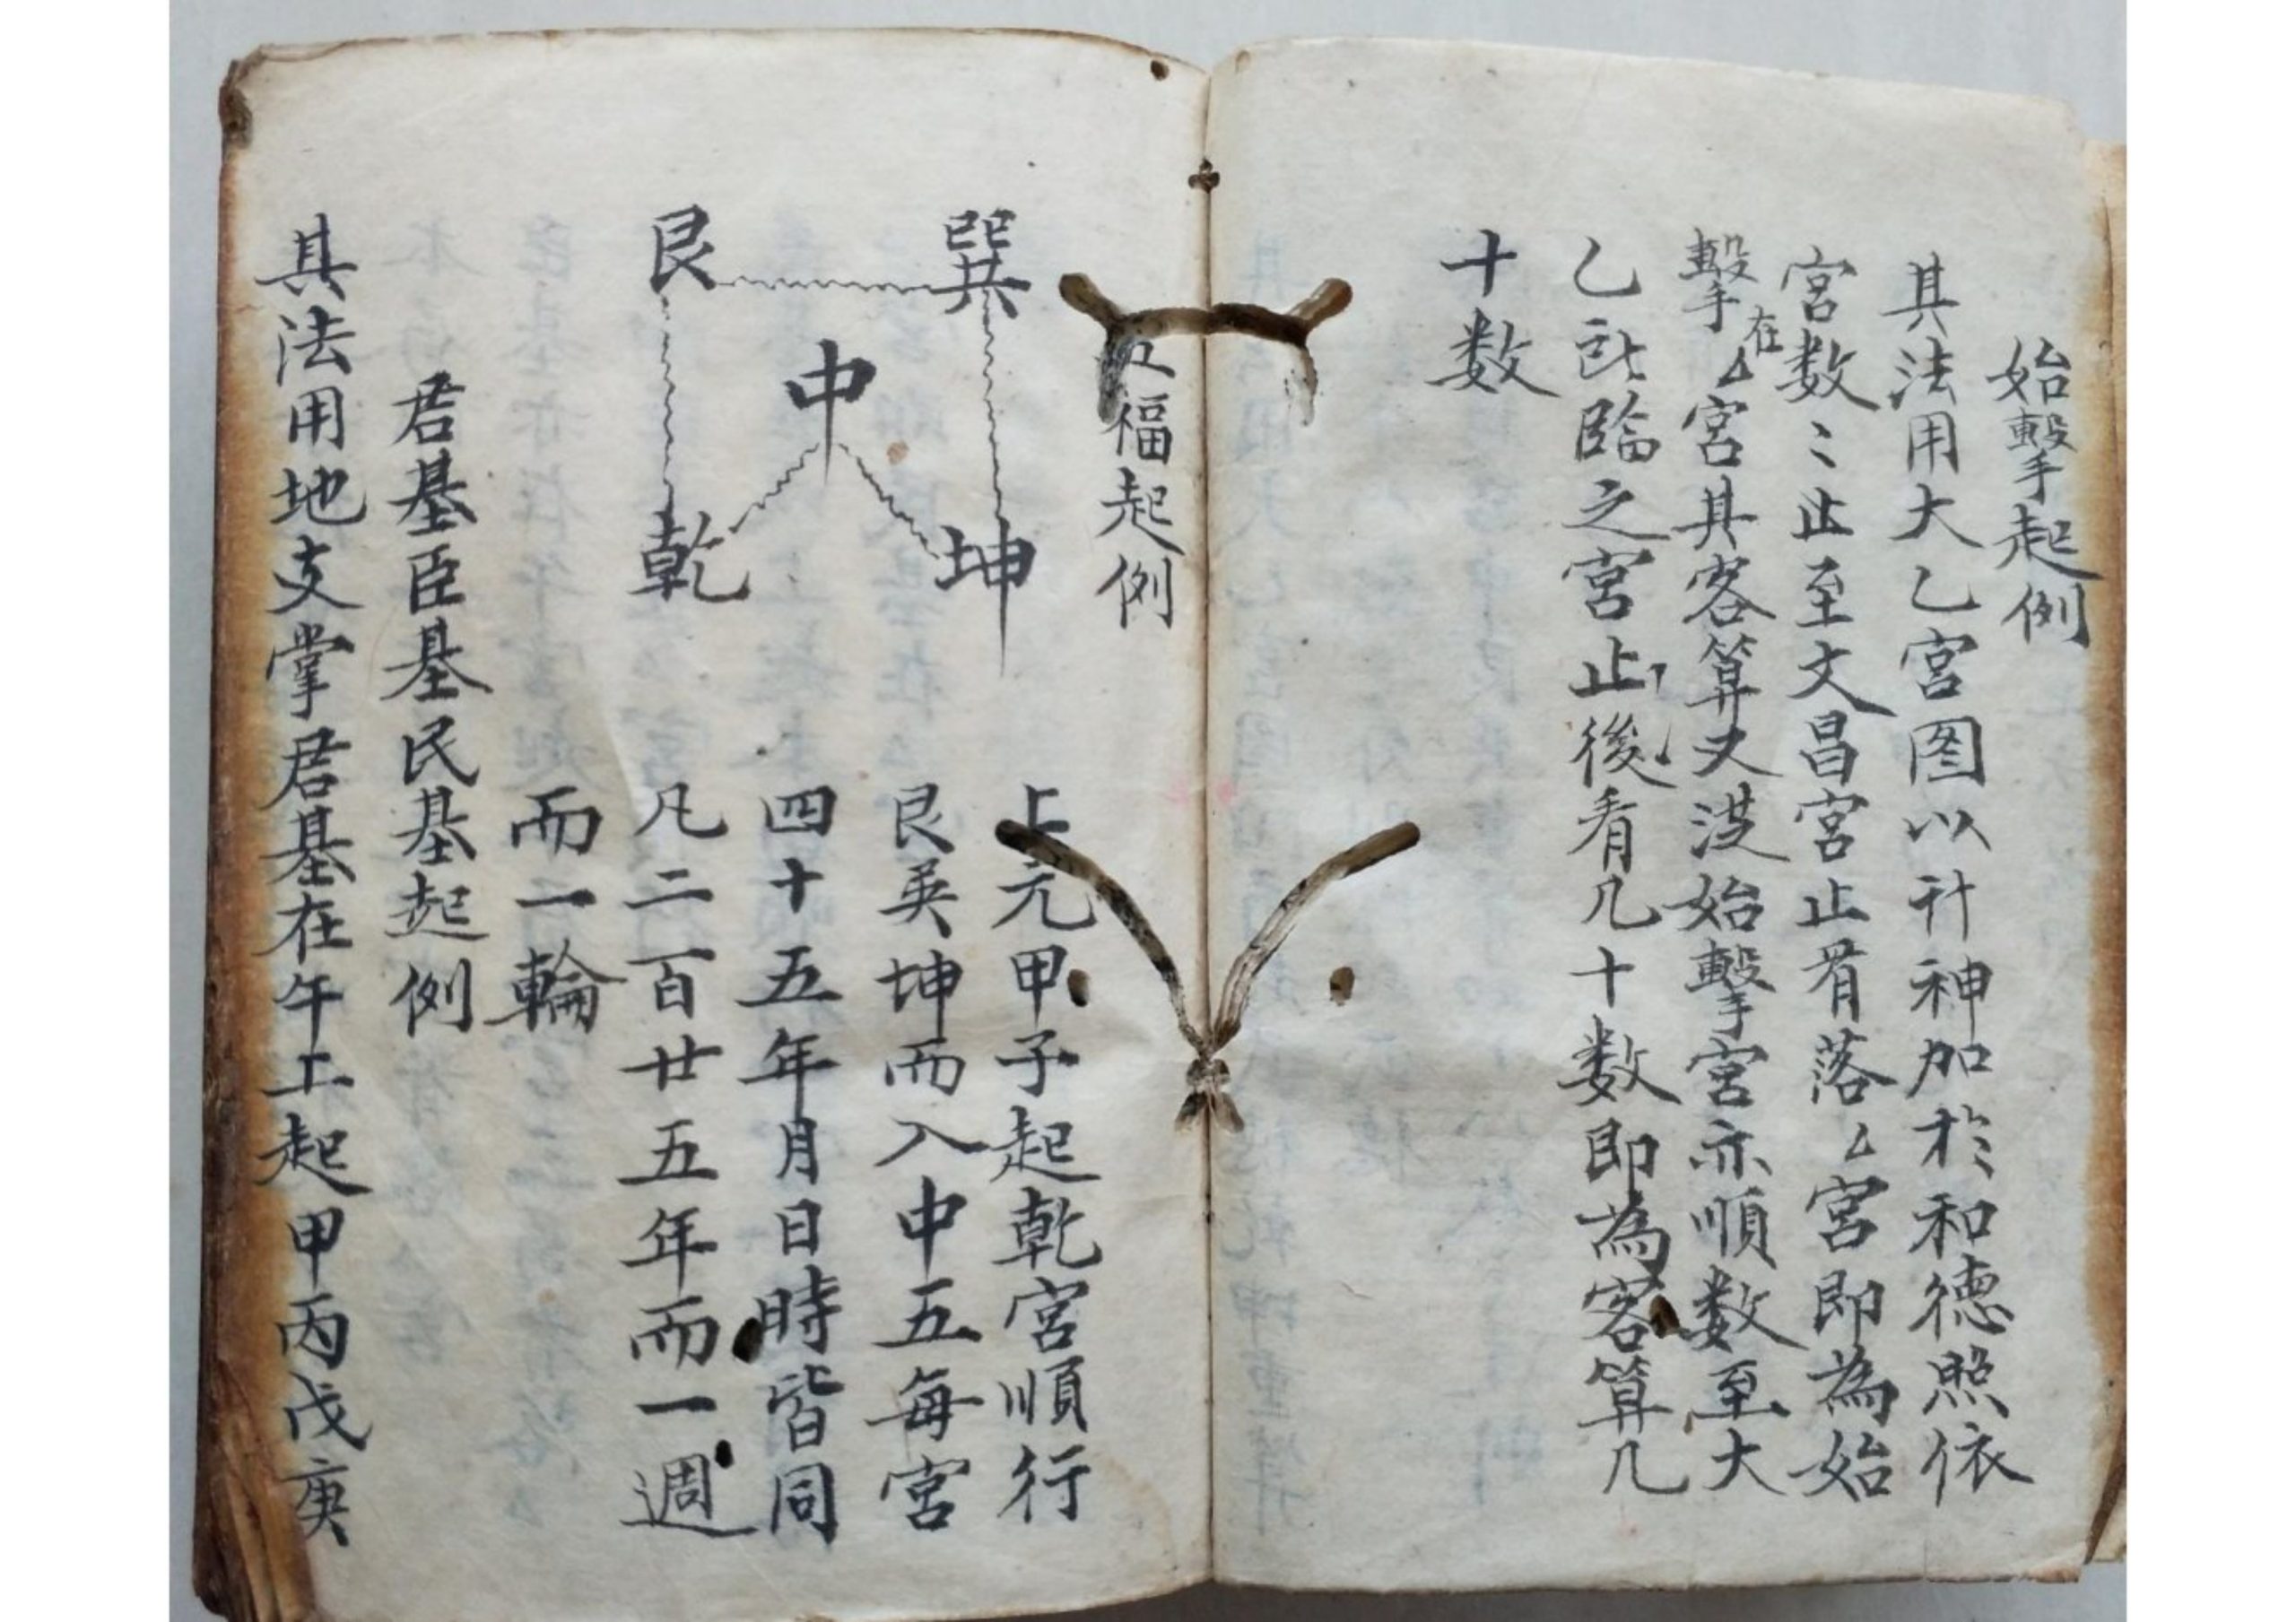 始擊起例
其法用大乙宮图以计神加於和德照依
宮数〻止至文昌宮止看落厶宮即為始
擊在厶宮其客算又從始擊宮亦順数至大
乙所臨之宮止後看几十数即為客算几
十数
五福起例
巽
艮
中
坤
乾
上元甲子起乾宮順行
艮巽坤而入中五每宮
四十五年月日時皆同
凡二百廿五年而一週
而一輪
君基臣基民基起例
其法用地支掌君基在午上起甲丙戊庚